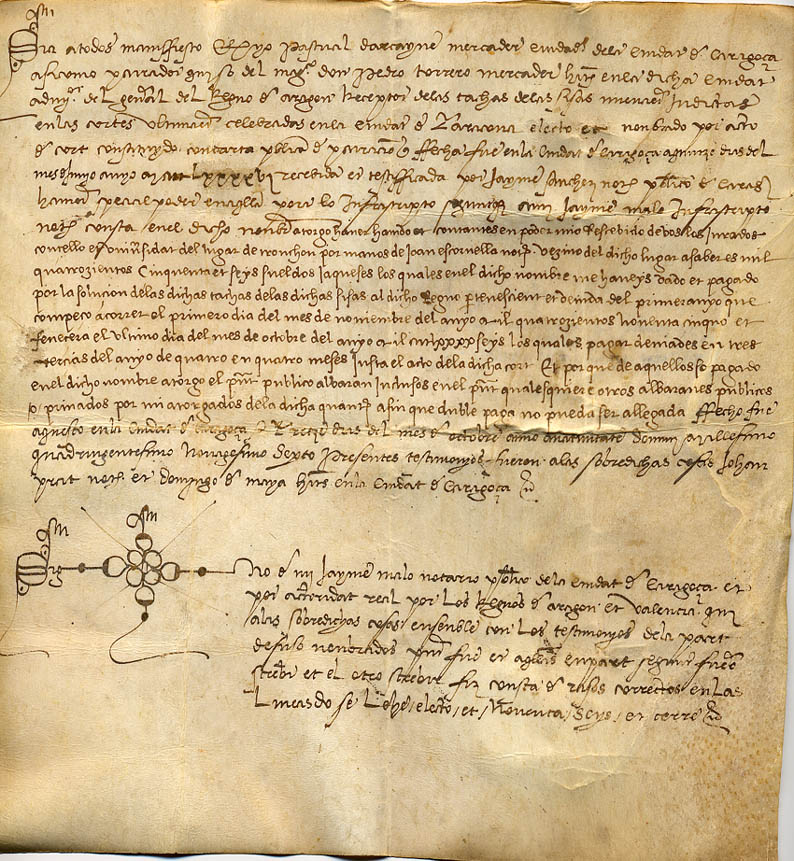 Sia a todos maniffiesto Que yo Pascual darcayne mercader ciudad. dela ciudat de Caragoça
asi como procurador qui so del mag.co don Pedro torrero mercader hait. en la dicha ciudat
adm.or del gen̄al del Regno de aragon Receptor delas tachas delas sisas
en las cortes ultimament celebradas en la ciudat de Taraçona electo et nonbrado por acto
de cort constituydo con carta publica de procuracion q̄ ffecha fue en la Ciudat de Caragoça a quinze dias del
mes de anyo LXXXXVI recebida et testifficada por Jayme sanchez not. publico de
havient special poder en aquella pora lo Infrascripto segunt a mi Jayme malo Infrascripto
not. consta en el dicho nonbre atorgo haver havido et contantes en poder mio Recebido de vos los Jurados
concello et univ̄sidat del lugar de tronchon por manos de Joan escornella not. vezino del dicho lugar a saber es mil
quatrozientos Cinquenta et seys sueldos Jaqueses los quales en el dicho nonbre me haveys dado et pagado
por la solucion delas dichas tachas delas dichas sisas al dicho Regno pertenescient et devida del primer anyo que
conpeço a correr el primero dia del mes de noviembre del anyo mil quatrozientos noventa cinquo et
fenecera el ultimo dia del mes de octubre del anyo mil cccclxxxx seys los quales pagar deviades en tres
tercias del anyo de quatro en quatro meses Justa el acto dela dicha cort Et por que de aquellos so pagado
en el dicho nombre atorgo el pñt publico albaran inclusos en el pñt qualesquiere otros albaranes publicos
o privados por mi atorgados dela dicha quant. a fin que duble paga no pueda ser allegada ffecho fue
aquesto en la Ciudat de Caragoça a dias del mes de octobre anno a nativitate domini Millesimo
quadringentesimo Nonagesimo Sexto Presentes testimonyos fueron alas sobredichas cosas Johan
prat not. et Domingo de maya hait.s en la Ciudat de Caragoça
Sig no de mi Jayme malo notario publico dela ciudat de Caragoça et
por actoridat real por los Regnos de aragon et valencia qui
alas sobredichas cosas ensemble con los testimonyos dela part
de suso nonbrados pñt fue et aquesto en part segunt fuero
screbi et el otro screbir fiz consta de rasos correctos en las
lineas do se lehe electo et Noventa Seys et cerre